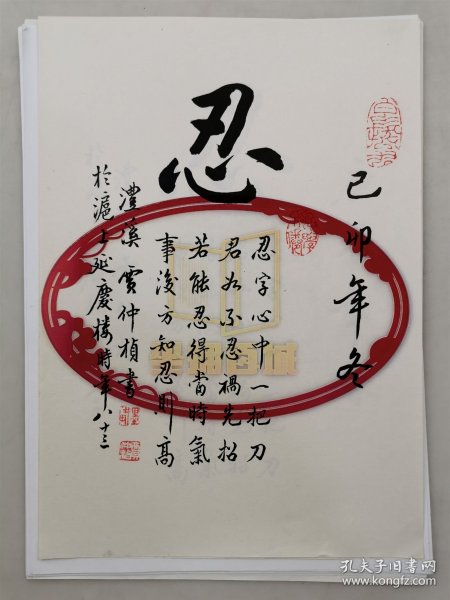 己卯年冬
忍
忍字心中一把刀
君如不忍禍先招
若能忍得當時氣
事後方知忍則高
澧溪 賈仲楨書
於滬上延慶樓時年八十三
孔夫子旧书网
www.kongfz.com